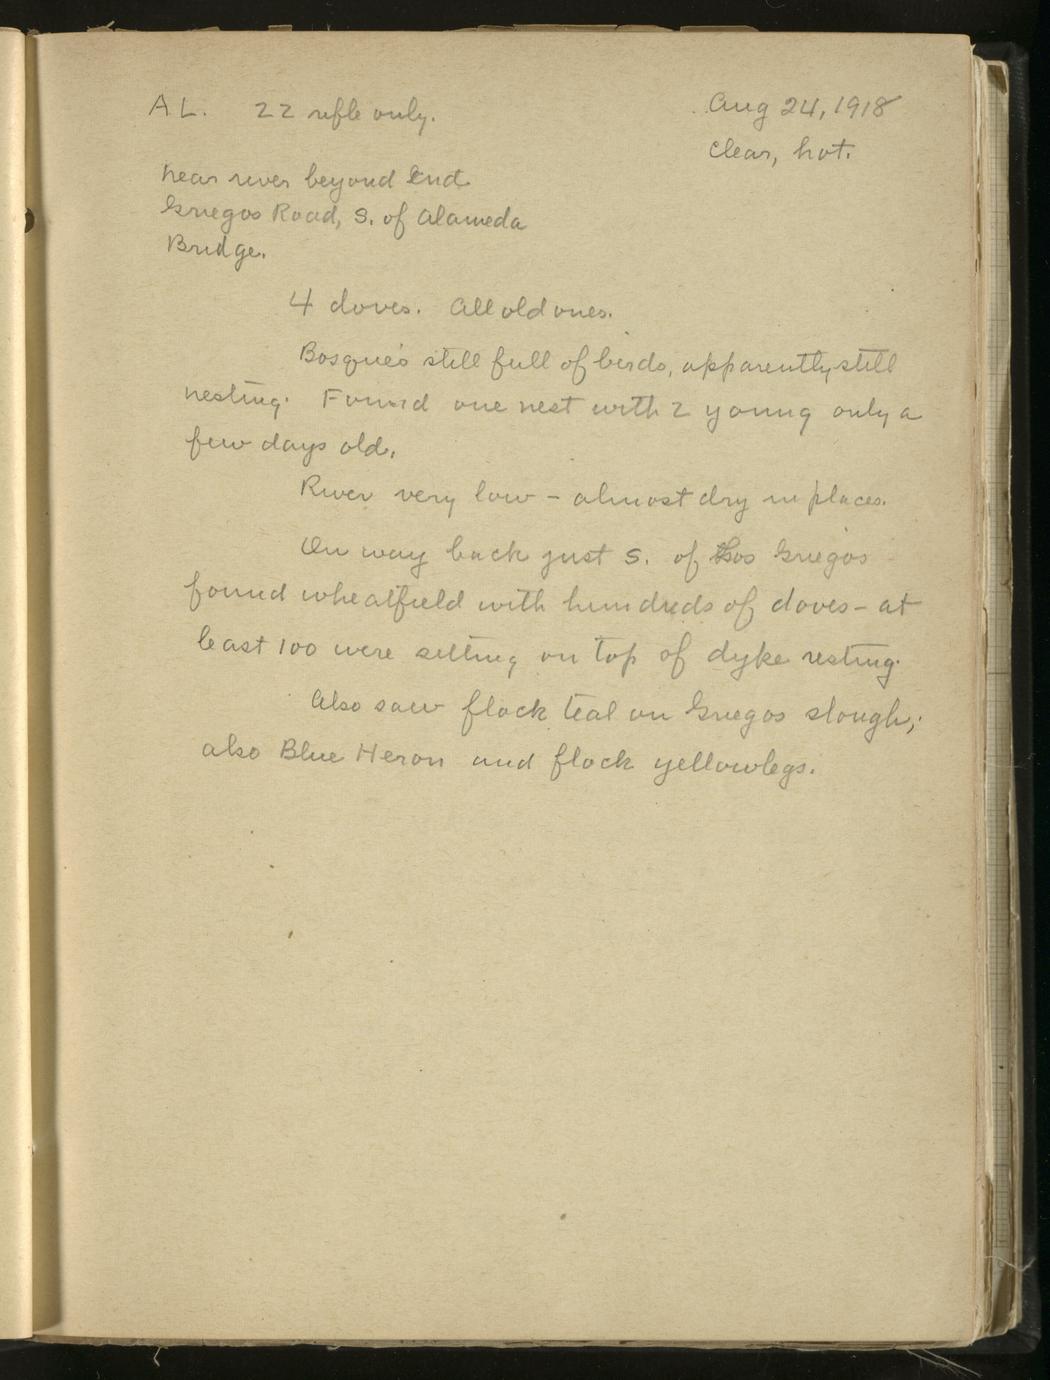 AL. 22 rifle only.
Aug 24, 1918
Clear, hot.
Near river beyond End
Griegos Road, S. of Alameda
Bridge.
4 doves. All old ones.
Bosques still full of birds, apparently still
nesting. Found one nest with 2 young only a
few days old.
River very low - almost dry in places.
On way back just S. of Los Griegos
found wheatfield with hundreds of doves - at
least 100 were sitting on top of dyke resting.
Also saw flock teal on Griegos slough;
also Blue Heron and flock yellowlegs.